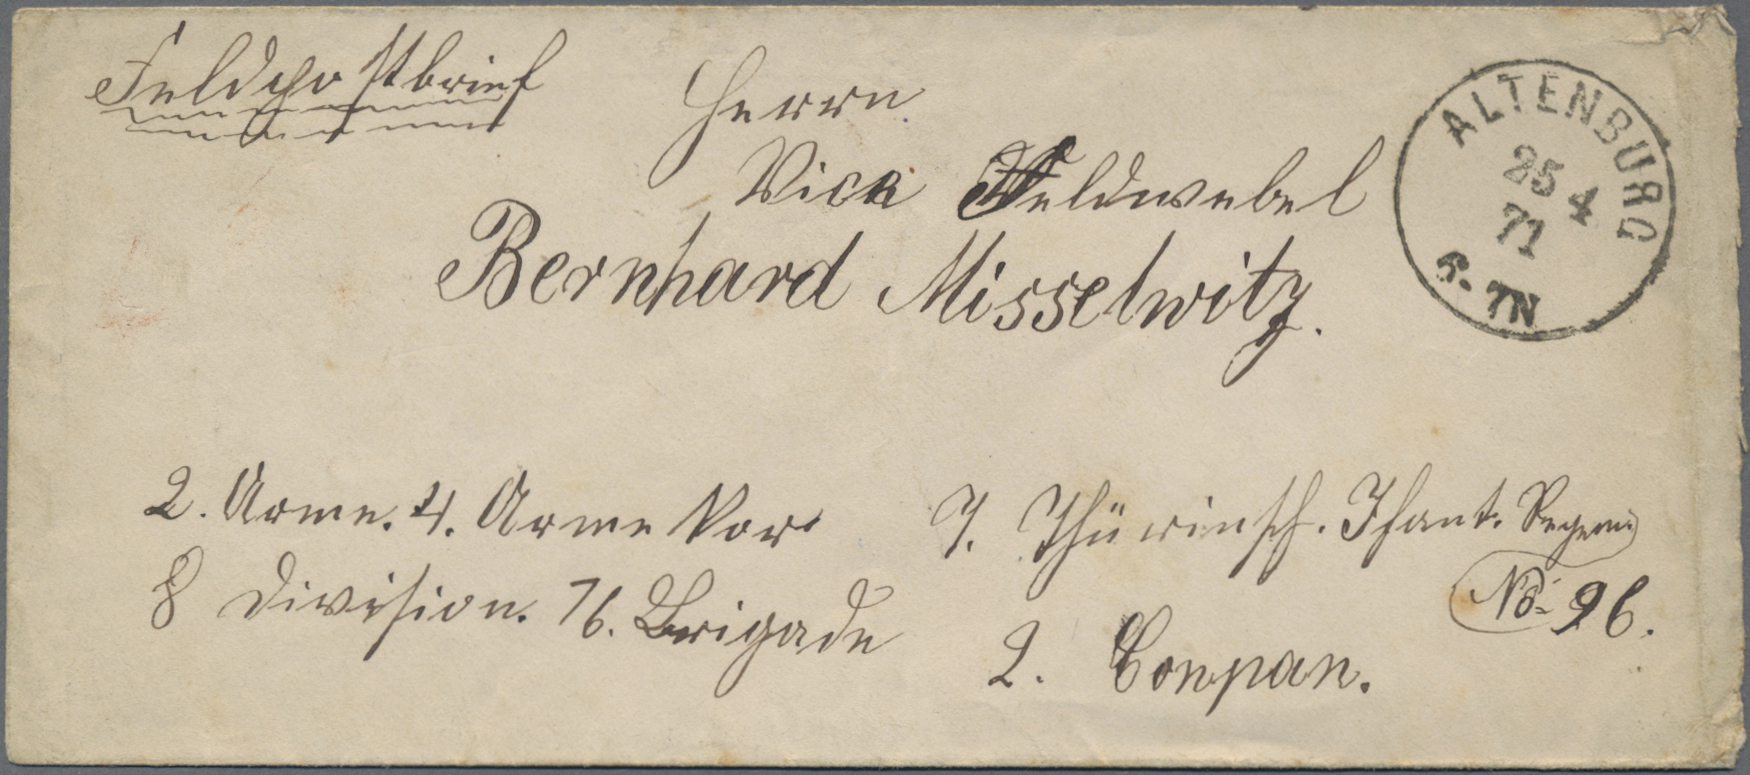 Feldpostbrief
Herrn
Vice Feldwebel
Bernhard Misselwitz.
ALTENBURG
25 4
71
6-7N
2. Arme. 4. Arme Kor
8 Division. 76. Brigade
7. Thürinsch. Ifant. Regem.
No 96.
2. Conpan.